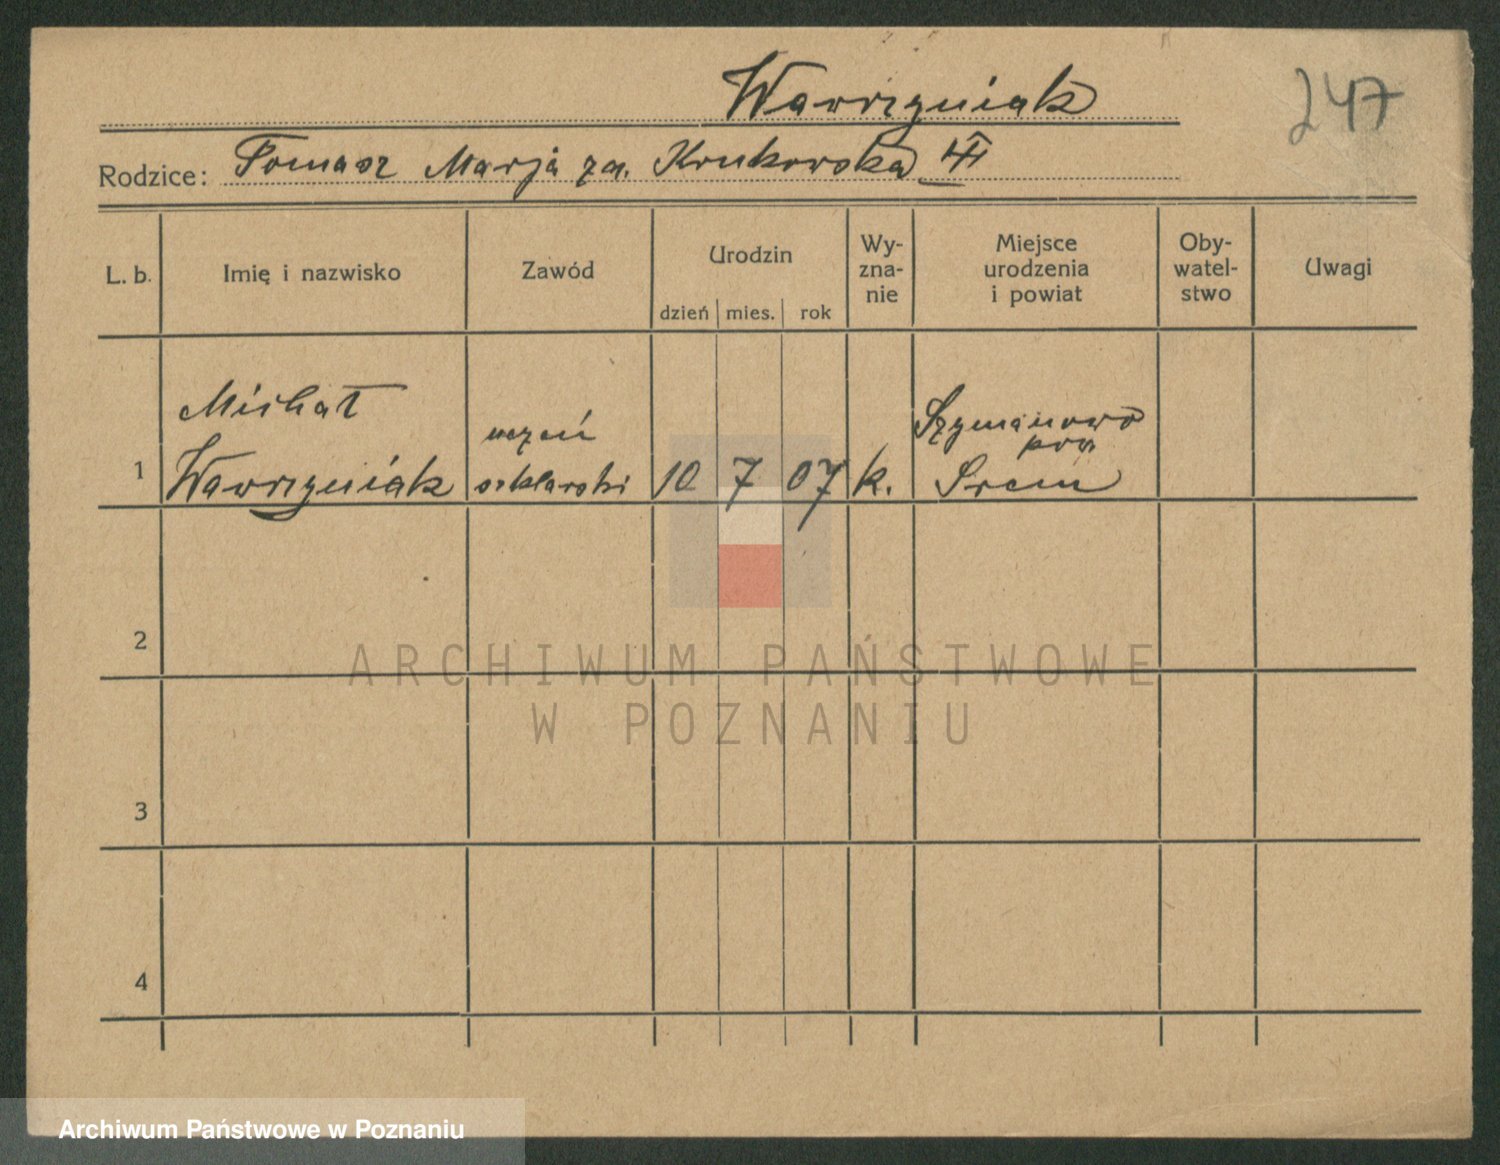 Wawrzyniak
247
Rodzice: Tomasz Marja za. Krukowska
L. b.
Imię i nazwisko
Zawód
Urodzin
dzień mies. rok
Wy-
zna-
nie
Miejsce
urodzenia
i powiat
Oby-
watel-
stwo
Uwagi
1
Michał
Wawrzyniak
uczeń
szklarski
10 7 07
k.
Szymanowo
pow
Śrem
2
3
4
ARCHIWUM PAŃSTWOWE
W POZNANIU
Archiwum Państwowe w Poznaniu